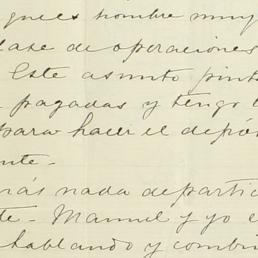 pues hombre muy
clase de operaciones
Este asunto pinta
pagadas y tengo
para hacer el depó
ente-
más nada de partic
te- Manuel y yo e
hablando y combi